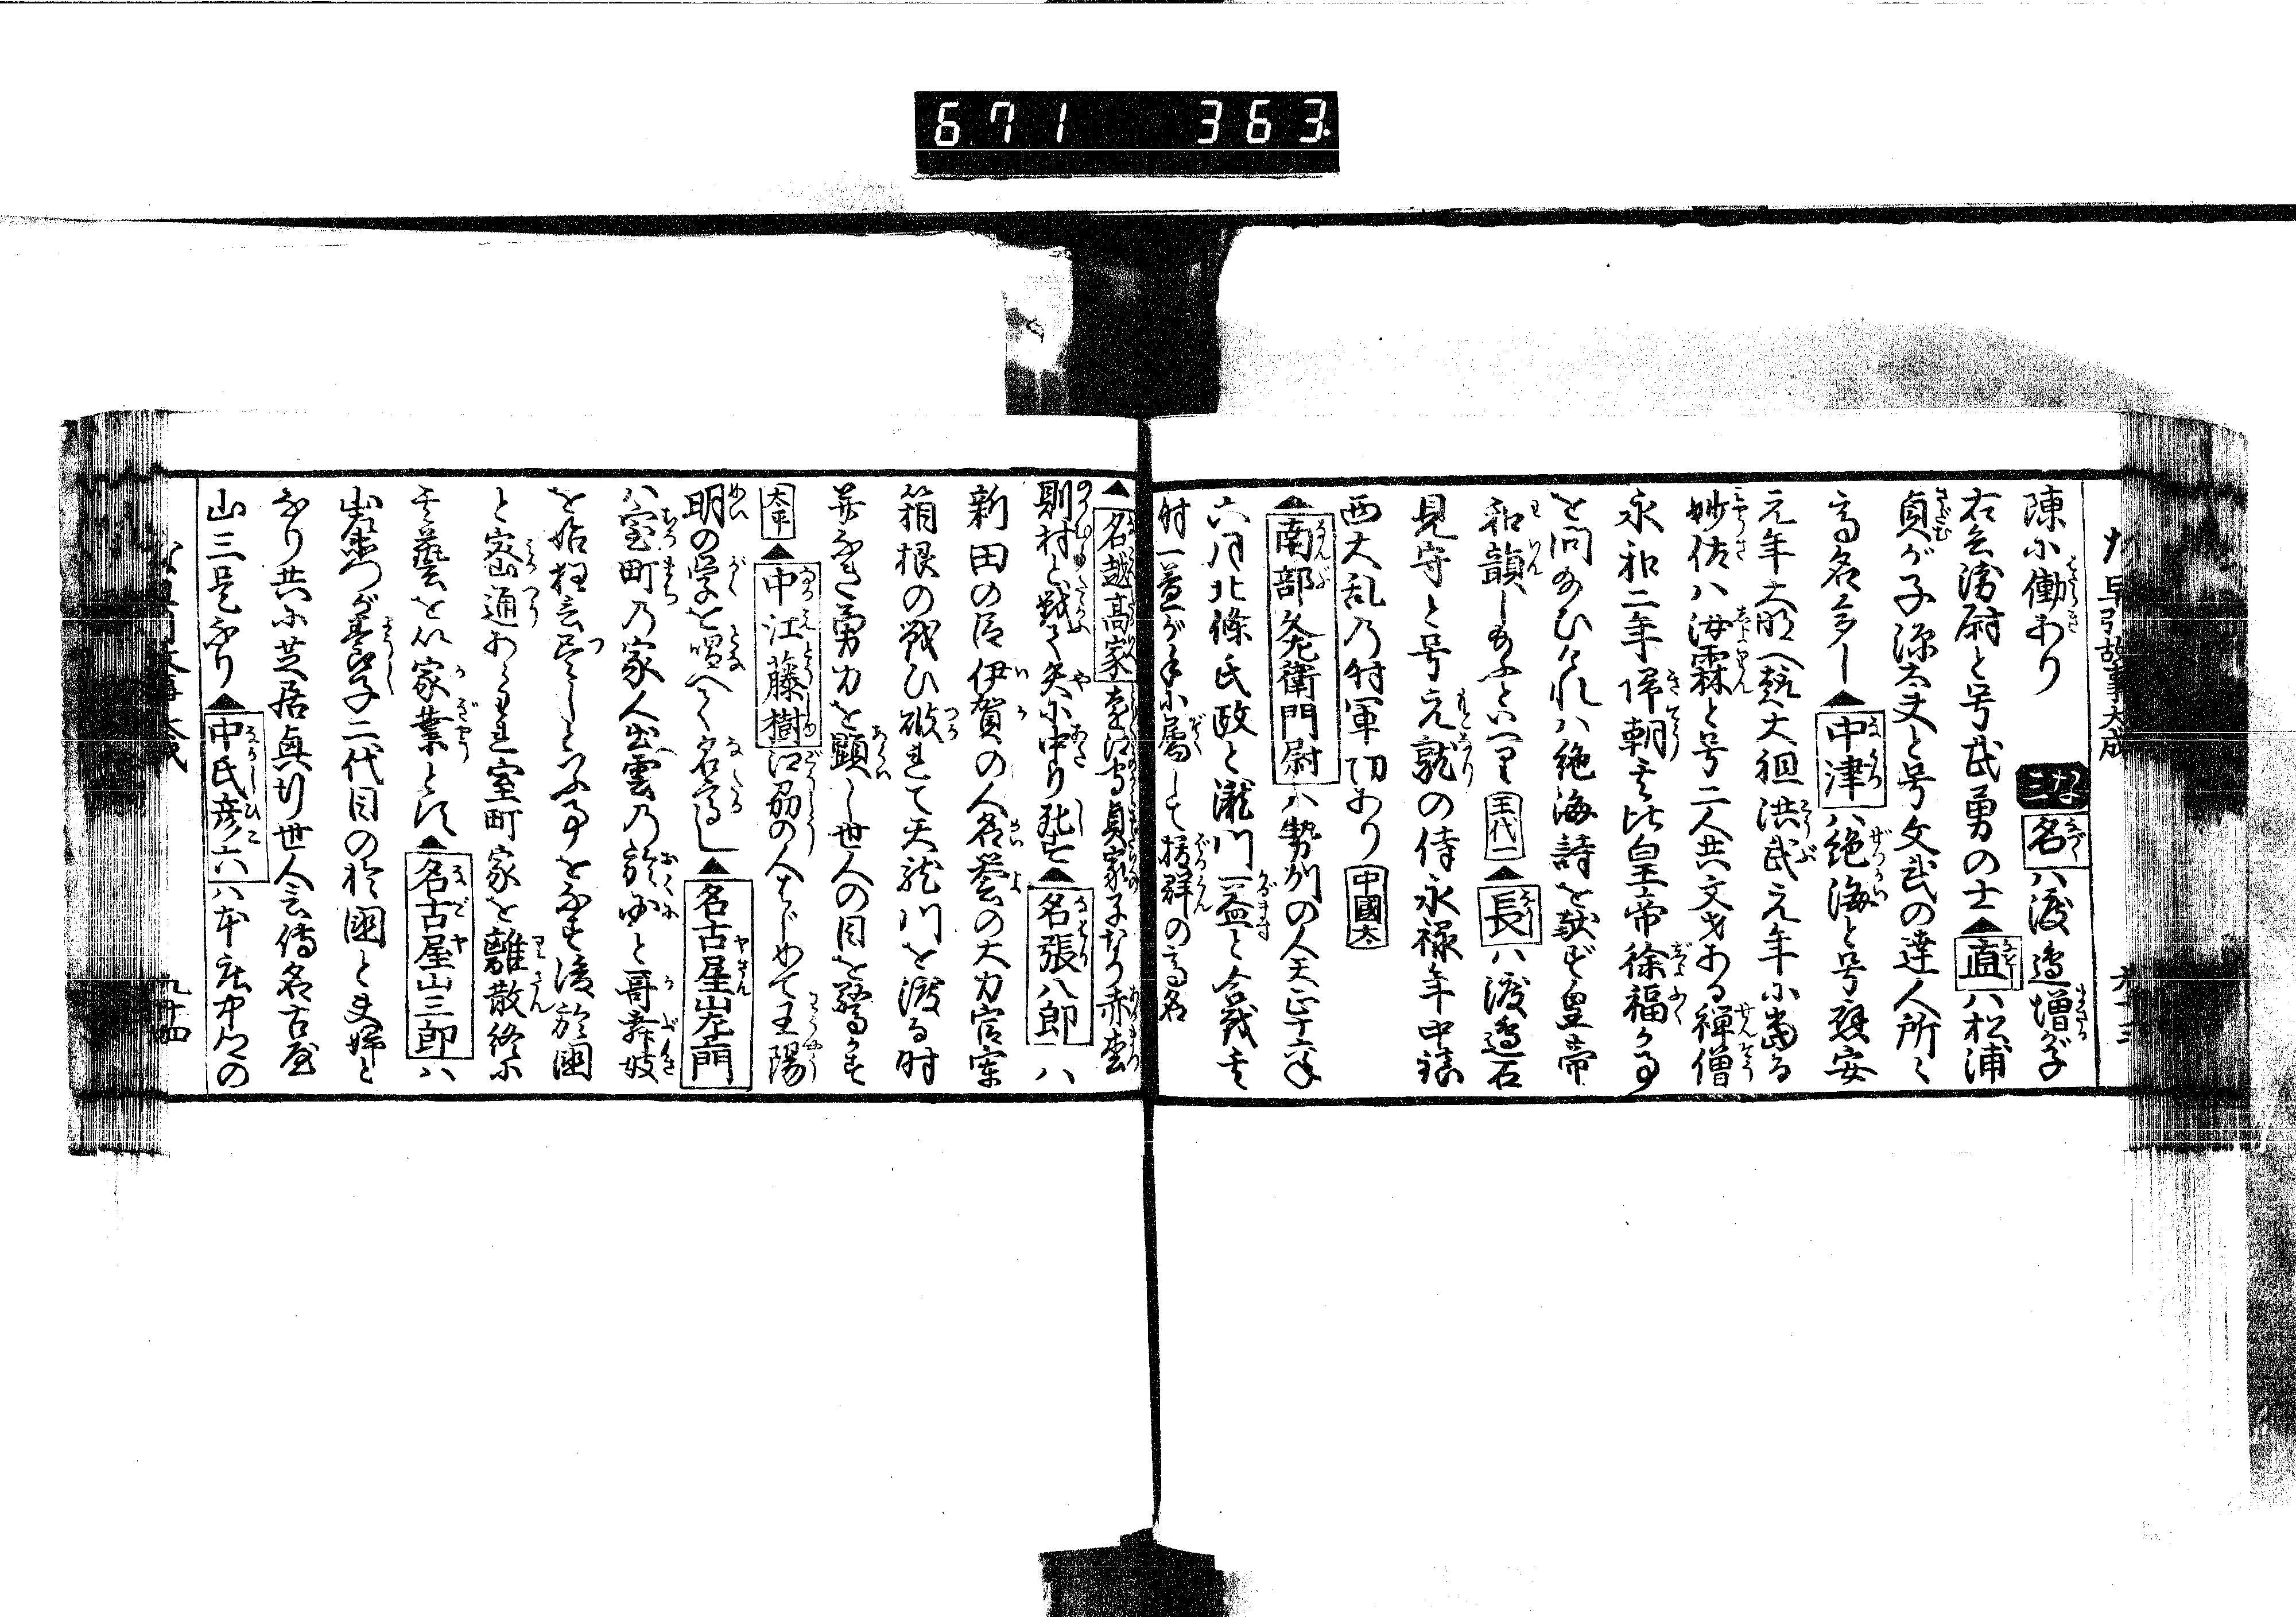 671 363
早引故事大成
九十三
陳に働あり 名ハ渡邉増が子
右兵衛尉と号武勇の士▲直ハ松浦
貞が子源太夫と号文武の達人所々
高名多し▲中津ハ絶海と号應安
元年大明へ越大祖洪武元年に當る
妙佐ハ汝霖と号二人共文才ある禅僧
永和二年帰朝す此皇帝徐福が事
を問給ひけれハ絶海詩を献ず皇帝
和韻し給ふといへり 王代一 ▲長ハ渡邉石
見守と号元就の侍永禄年中
西大乱の時軍功あり 中國太
▲南部兵衛門尉ハ勢州の人天正十六年
六月北條氏政と瀧川一益と合戦す
時一益が手に属して抜群の高名
▲名越高家遠江守貞家子なり赤松
則村と戦て矢に中り死す▲名張八郎ハ
新田の侍伊賀の人名誉の大力官軍
箱根の戦ひ破れて天龍川を渡る時
并なき勇力を顕し世人の目を驚かす
太平 ▲中江藤樹江刕の人はじめて王陽
明の学を唱へて名高し▲名古屋山左エ門
ハ室町の家人出雲の於国と哥舞妓
を始狂言尽しといふ事をなす後於國
と密通あらはれ室町家を離散終に
其藝を以家業とす▲名古屋山三郎ハ
山左エ門が養子二代目の於國と夫婦と
なり共に芝居興行世人云傳名古屋
山三是なり▲中氏彦六ハ
九十四